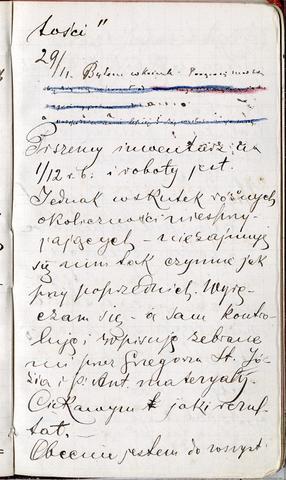 tości"
29/11. Byłem w kinie.
Piszemy inwentarz na
1/12 r.b. i roboty jest.
Jednak wskutek różnych
okoliczności niesprzy-
jających – niezajmuję
się nim tak czynnie jak
przy poprzednich. Wyrę-
czam się – a sam kontro-
luję i wpisuję zebrane
mi przez Grzegorza St. Jó-
zia i p. Ant. materyały.
Ciekawym jaki rezul-
tat.
Obecnie jestem do rozryst